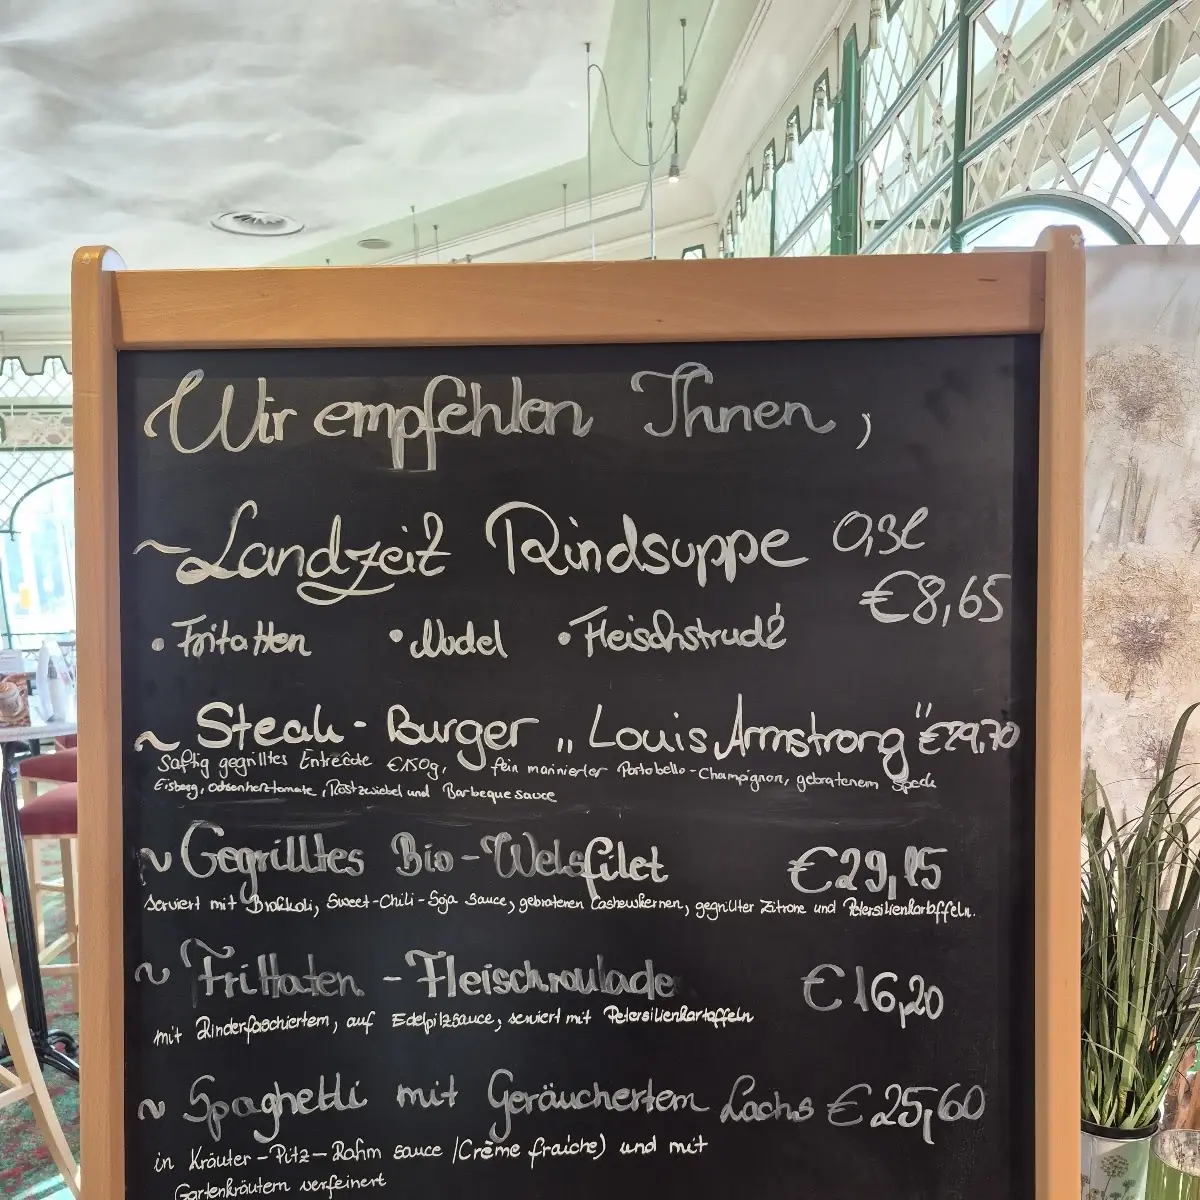 Wir empfehlen Ihnen,
~ Landzeit Rindsuppe 0,3l
€8,65
• Fritatten • Nudel • Fleischstrudl
~ Steak - Burger „Louis Armstrong“ €29,70
Saftig gegrilltes Entrecôte €150g, fein marinierter Portobello-Champignon, gebratenem Speck
Eisberg, Ochsenherztomate, Röstzwiebel und Barbeque sauce
~ Gegrilltes Bio-Welsfilet €29,15
serviert mit Brokkoli, Sweet-Chili-Soja Sauce, gebratenen Cashewkernen, gegrillter Zitrone und Petersilienkartoffeln.
~ Frittaten - Fleischroulade €16,20
mit Rinderfaschiertem, auf Edelpilzsauce, serviert mit Petersilienkartoffeln
~ Spaghetti mit Geräuchertem Lachs €25,60
in Kräuter-Pilz-Rahm sauce /Crème fraîche) und mit
Gartenkräutern verfeinert